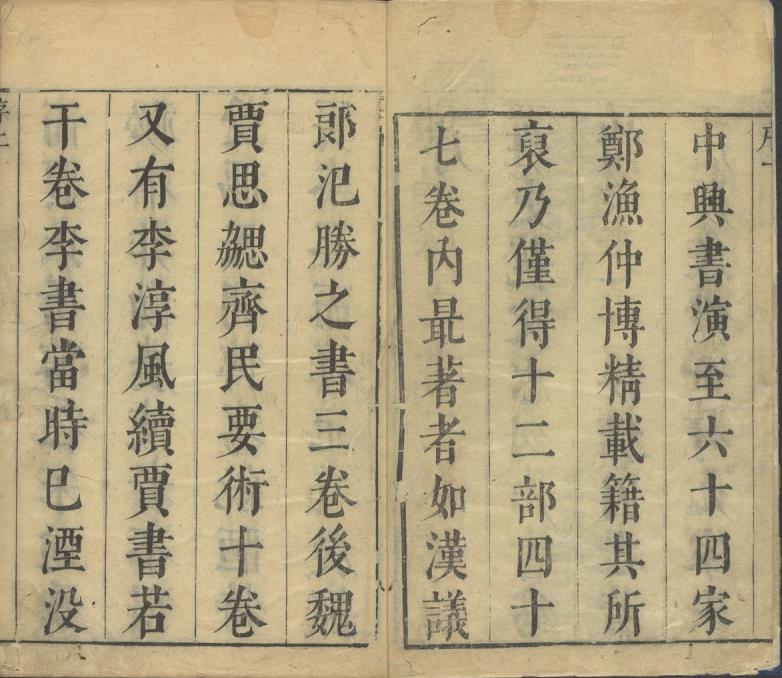 中興書演至六十四家
鄭漁仲博精載籍其所
裒乃僅得十二部四十
七卷内最著者如漢議
郎氾勝之書三卷後魏
賈思勰齊民要術十卷
又有李淳風續賈書若
干卷李書當時已湮没